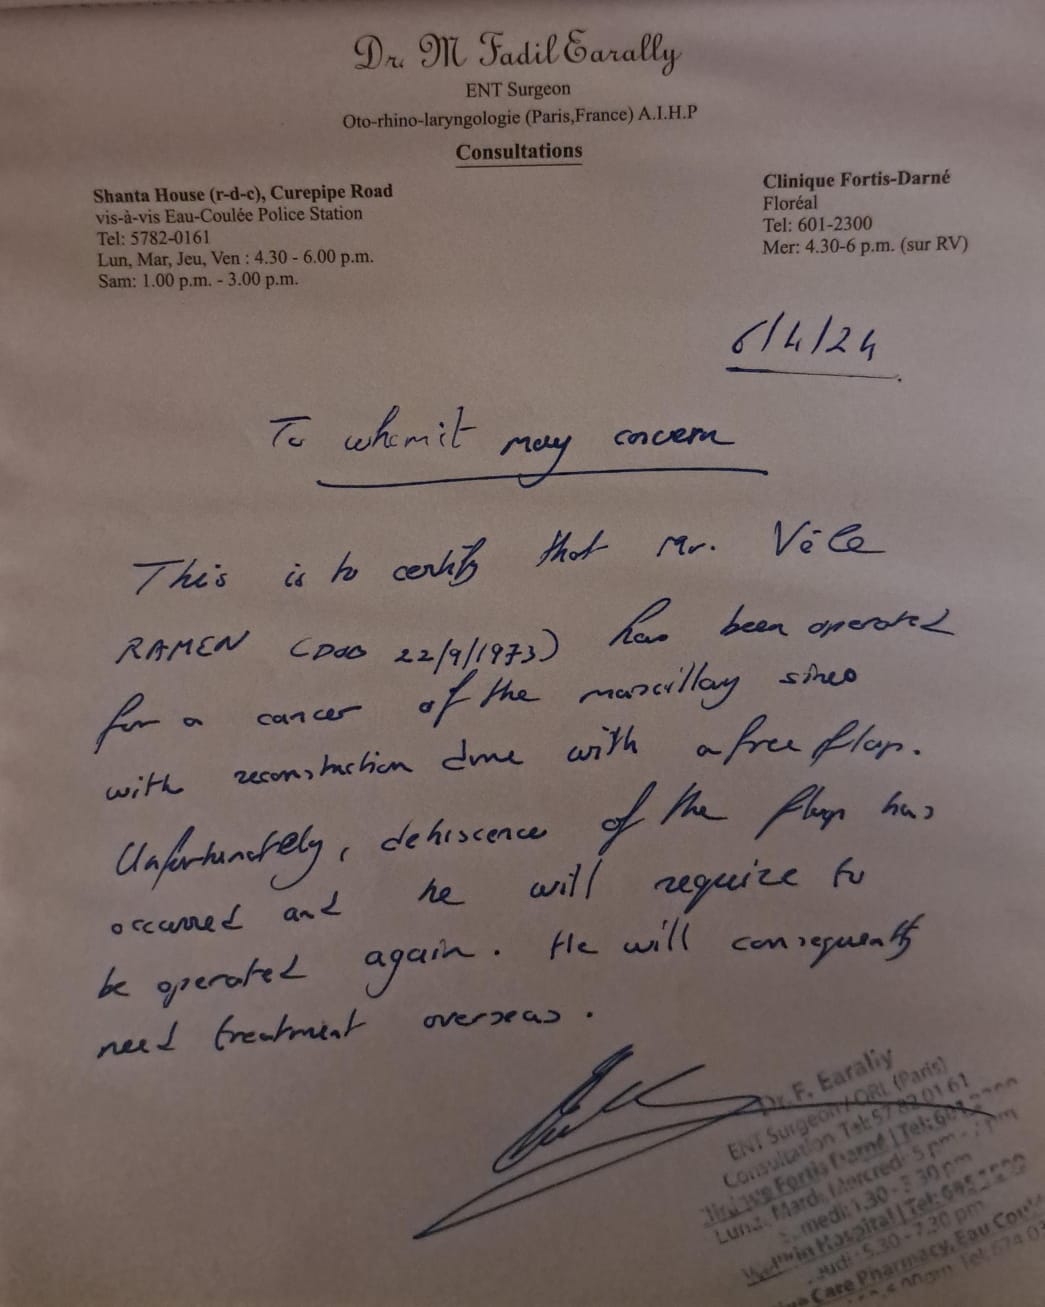 Dr. M Fadil Earally
ENT Surgeon
Oto-rhino-laryngologie (Paris,France) A.I.H.P
Consultations
Shanta House (r-d-c), Curepipe Road
vis-à-vis Eau-Coulée Police Station
Tel: 5782-0161
Lun, Mar, Jeu, Ven : 4.30 - 6.00 p.m.
Sam: 1.00 p.m. - 3.00 p.m.
Clinique Fortis-Darné
Floréal
Tel: 601-2300
Mer: 4.30-6 p.m. (sur RV)
6/4/24
To whom it may concern
This is to certify that Mr. Vèle
RAMEN (DOB 22/9/1973) has been operated
for a cancer of the maxillary sinus
with reconstruction done with a free flap.
Unfortunately, dehiscence of the flap has
occurred and he will require to
be operated again. He will consequently
need treatment overseas.
Dr. F. Earally
ENT Surgeon / ORL (Paris)
Consultation Tel: 57 82 01 61
Fortis Darné | Tel: 601
Mardi, Mercredi: 5 pm -
1.30 - 3.30 pm
Hospital | Tel:
5.30 - 7.30 pm
Care Pharmacy, Eau